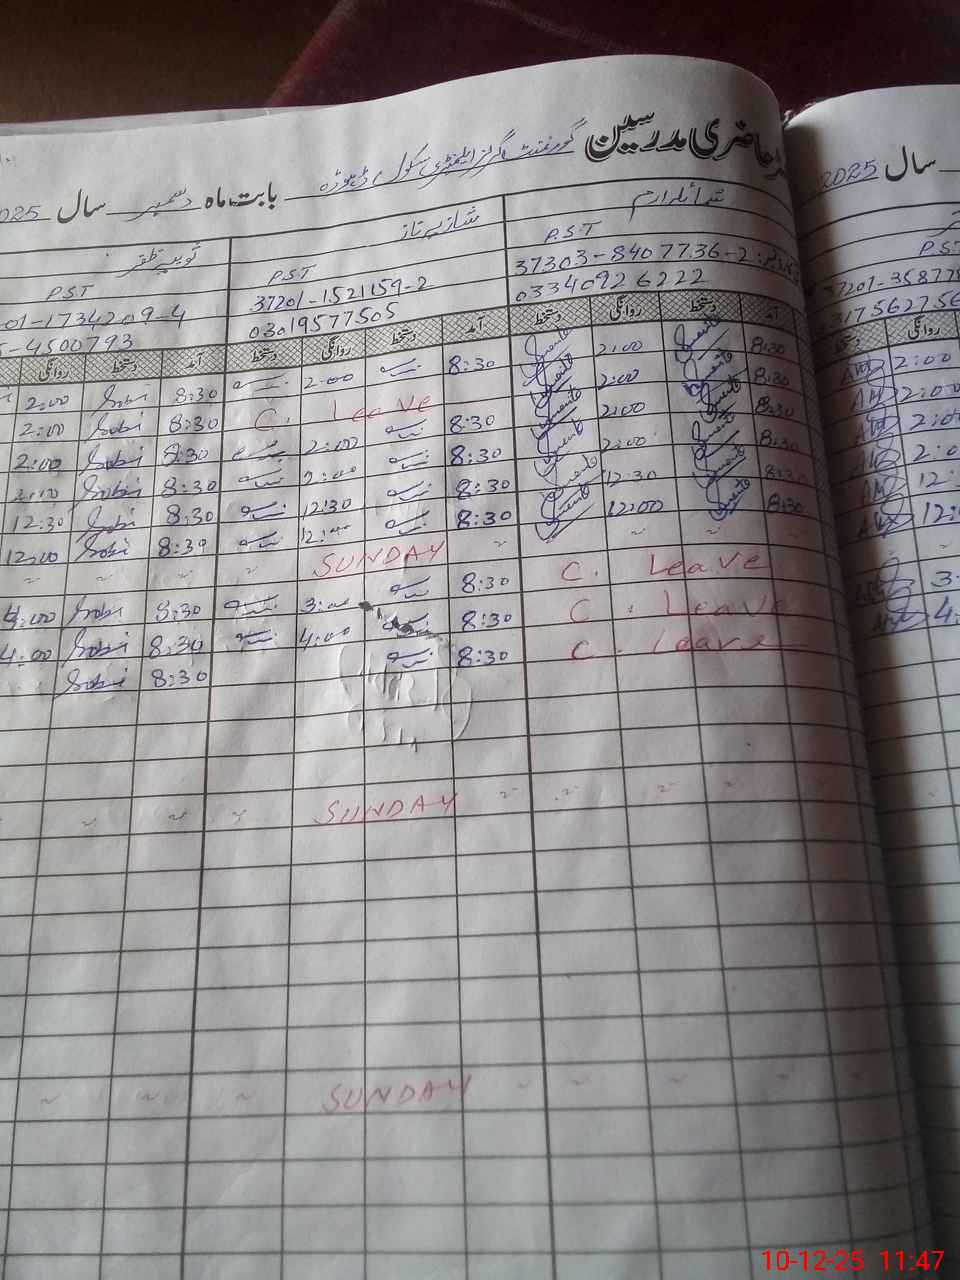 حاضری مدرسین گورنمنٹ گرلز ایلیمنٹری سکول ڈہوڈہ بابت ماہ دسمبر سال 2025
سال 2025
شمائلہ ارم
شازیہ ناز
ثوبیہ ظفر
P.S.T
P.S.T
P.S.T
P.S.T
37303-8407736-2
37201-1521159-2
01-1734209-4
37201-35877
03340926222
03019577505
5-4500793
317562756
آمد دستخط روانگی دستخط آمد دستخط روانگی دستخط آمد دستخط روانگی
دستخط روانگی
8:30 2:00 8:30 2:00 8:30 2:00
2:00
8:30 2:00 8:30 C. Leave 8:30 2:00
2:00
8:30 2:00 8:30 2:00 8:30 2:00
2:0
8:30 2:00 8:30 2:00 8:30 2:00
2:0
8:30 12:30 8:30 12:30 8:30 12:30
12:
8:30 12:00 8:30 12:00 8:30 12:00
12:
SUNDAY
C. Leave 8:30 3:00 8:30 4:00
3:
C. Leave 8:30 4:00 8:30 4:00
4:
C. Leave 8:30 8:30
SUNDAY
SUNDAY
10-12-25 11:47